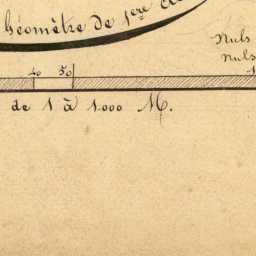 Géomètre de 1ere
Nuls
nuls
40 50
de 1 à 1000 M.